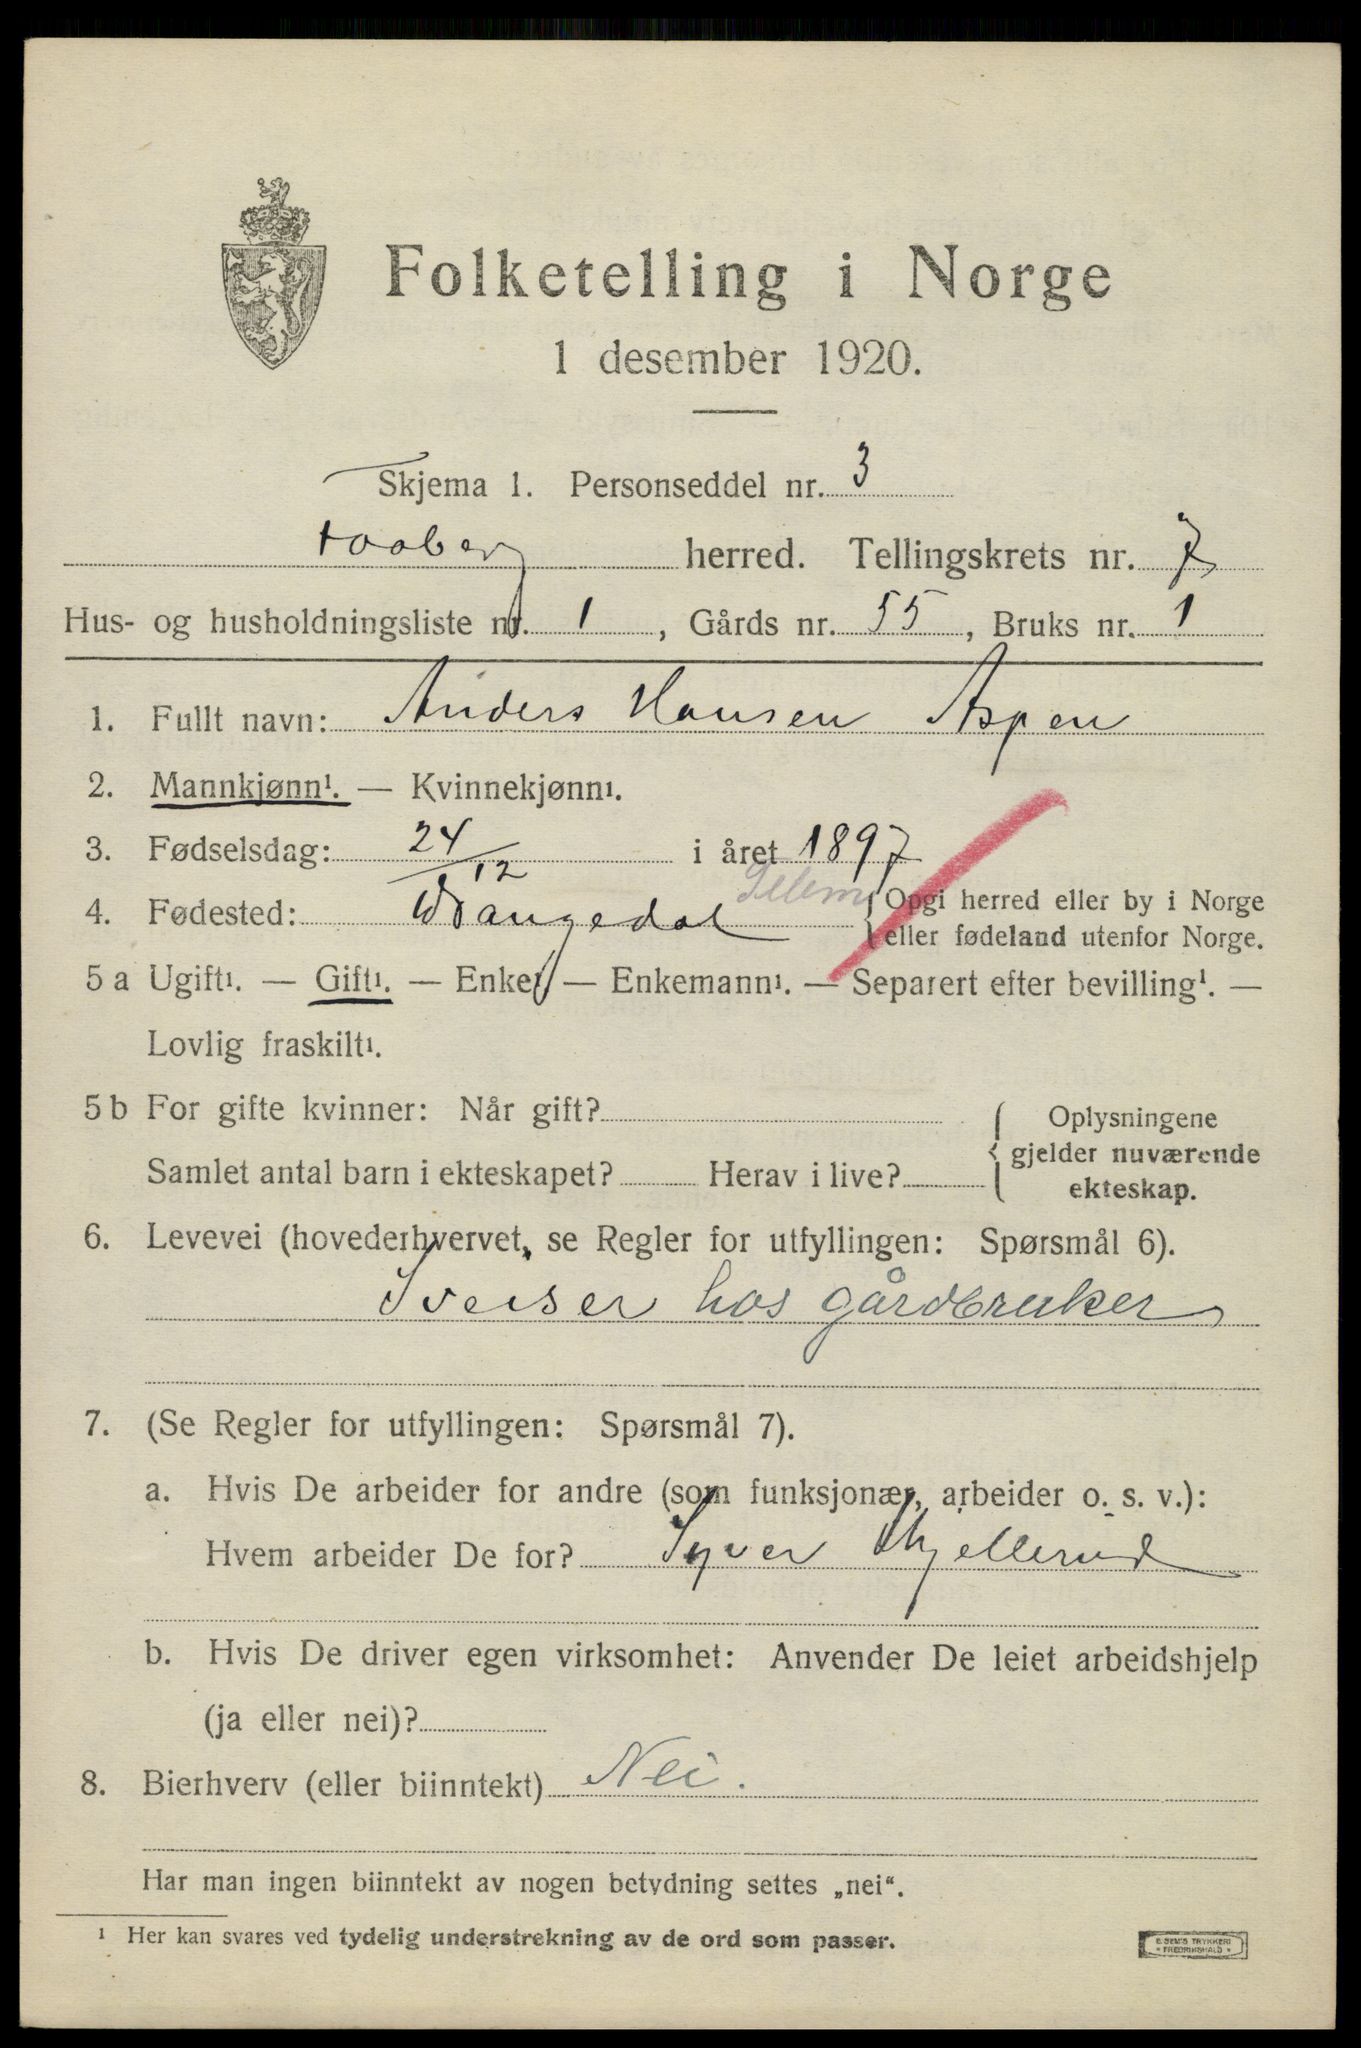 Folketelling i Norge
1 desember 1920.
Skjema 1. Personseddel nr. 3
Faaberg herred. Tellingskrets nr. 7
Hus- og husholdningsliste nr. 1, Gårds nr. 55, Bruks nr. 1
1. Fullt navn: Anders Hansen Aspen
2. Mannkjønn¹. — Kvinnekjønn¹.
3. Fødselsdag: 24/12 i året 1897
4. Fødested: Drangedal Telem {Opgi herred eller by i Norge
eller fødeland utenfor Norge.
5 a Ugift¹. — Gift¹. — Enke¹. — Enkemann¹. — Separert efter bevilling¹. —
Lovlig fraskilt¹.
5 b For gifte kvinner: Når gift?
Samlet antal barn i ekteskapet? Herav i live?
{Oplysningene
gjelder nuværende
ekteskap.
6. Levevei (hovederhvervet, se Regler for utfyllingen: Spørsmål 6).
Sveiser hos gårdbruker
7. (Se Regler for utfyllingen: Spørsmål 7).
a. Hvis De arbeider for andre (som funksjonær, arbeider o. s. v.):
Hvem arbeider De for? Syver Skjellerud
b. Hvis De driver egen virksomhet: Anvender De leiet arbeidshjelp
(ja eller nei)?
8. Bierhverv (eller biinntekt) Nei.
Har man ingen biinntekt av nogen betydning settes „nei“.
¹ Her kan svares ved tydelig understrekning av de ord som passer.
E. SEM'S TRYKKERI
* FREDRIKSHALD *